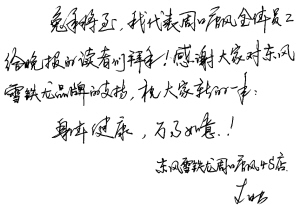 兔年将至，我代表周口唐风全体员工
给晚报的读者们拜年！感谢大家对东风
雪铁龙品牌的支持，祝大家新的一年：
身体健康，万事如意！
东风雪铁龙周口唐风4S店